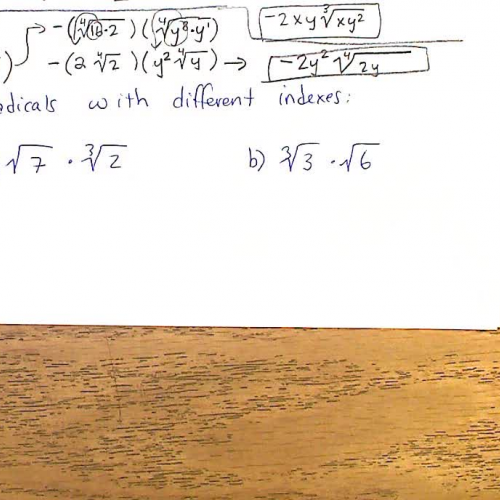 -(∜(16·2))(∜(y⁸·y¹)) -2xy∛(xy²)
) -(2 ∜2)(y² ∜y) → -2y² ∜(2y)
adicals with different indexes:
√7 · ∛2 b) ∛3 · √6